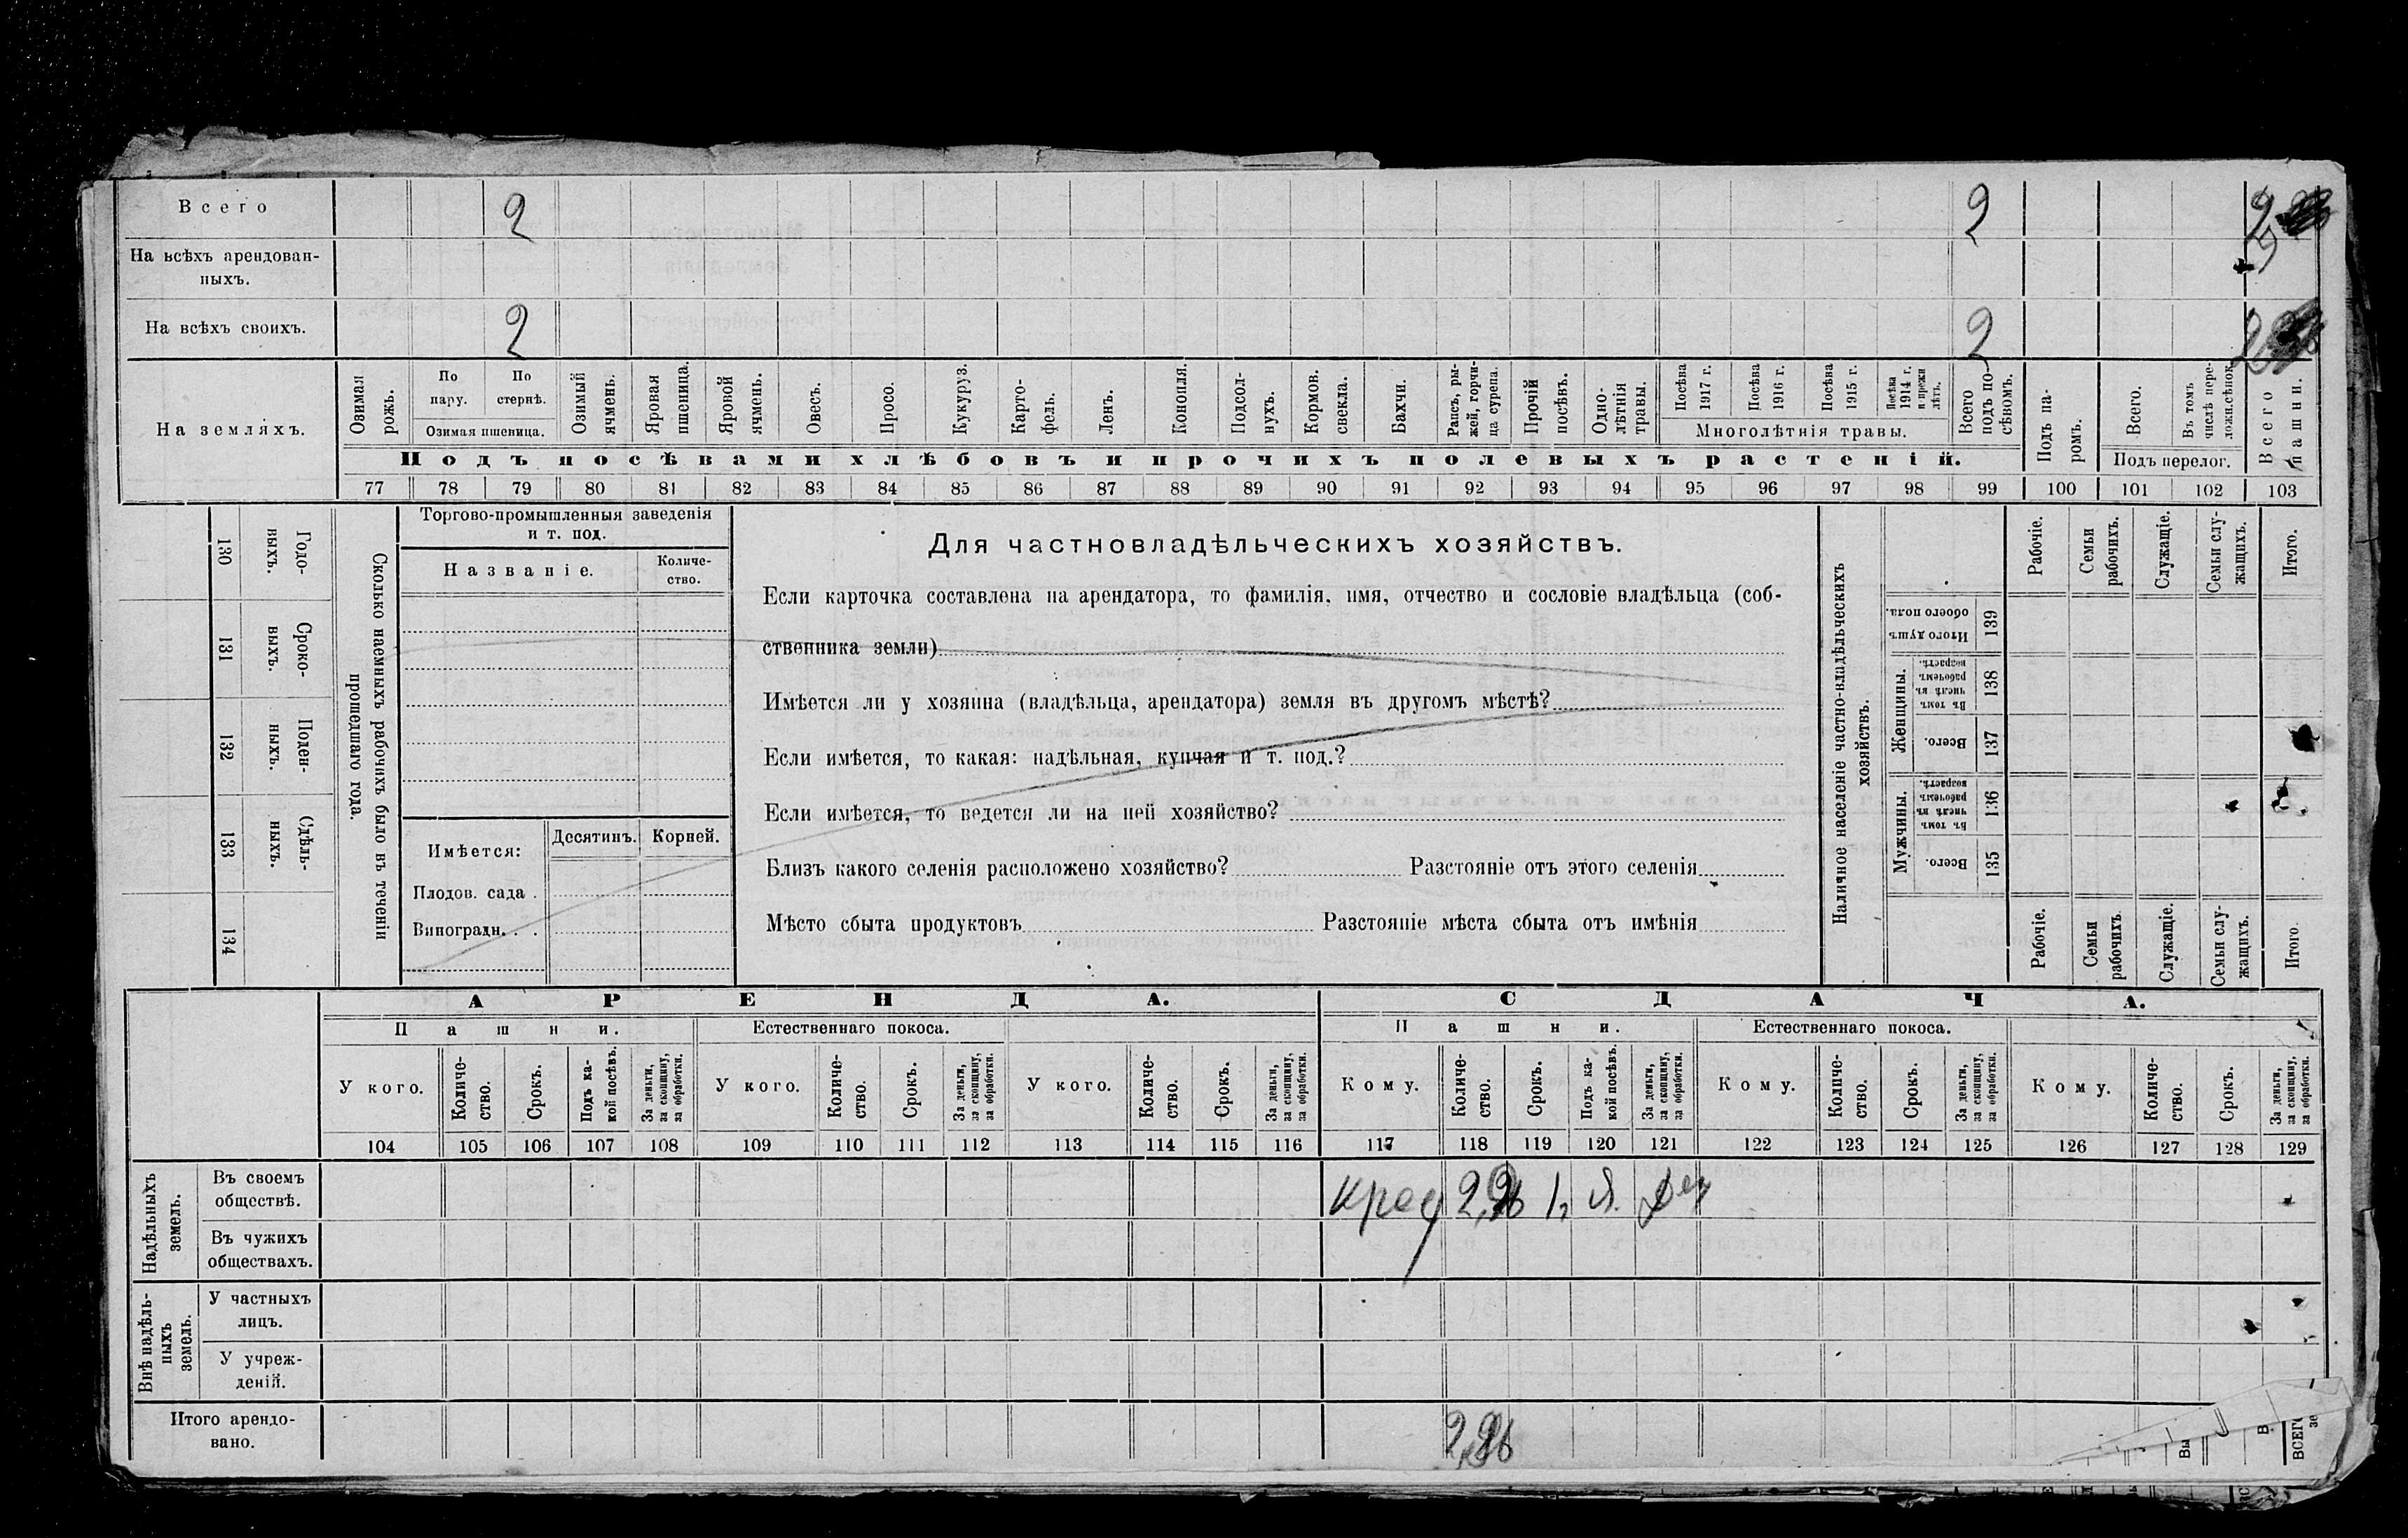 Всего 2 2 2
На всѣхъ арендован-
ныхъ.
На всѣхъ своихъ. 2 2
На земляхъ.
Озимая рожь.
По пару.
По стернѣ.
Озимая пшеница.
Озимый ячмень.
Яровая пшеница.
Яровой ячмень.
Овесъ.
Просо.
Кукуруз.
Карто-
фель.
Ленъ.
Конопля.
Подсол-
нухъ.
Кормов. свекла.
Бахчи.
Рапсъ, ры-
жей, горчи-
ца сурепа.
Прочій посѣвъ.
Одно-
лѣтнія травы.
Посѣва 1917 г.
Посѣва 1916 г.
Посѣва 1915 г.
Посѣва 1914 г. и прежн лѣтъ.
Многолѣтнія травы.
Всего подъ по-
сѣвомъ.
Подъ па-
ромъ.
Всего.
Въ томъ числѣ пере-
ложн.сѣнок.
Подъ перелог.
Всего пашни.
Подъ посѣвами хлѣбовъ и прочихъ полевыхъ растеній.
77 78 79 80 81 82 83 84 85 86 87 88 89 90 91 92 93 94 95 96 97 98 99 100 101 102 103
130 Годо-
выхъ.
131 Сроко-
выхъ.
132 Поден-
ныхъ.
133 Сдѣль-
ныхъ.
134
Сколько наемныхъ рабочихъ было въ теченіи
прошедшаго года.
Торгово-промышленныя заведенія
и т. под.
Названіе.
Количе-
ство.
Имѣется: Десятинъ. Корней.
Плодов. сада .
Виноградн. . .
Для частновладѣльческихъ хозяйствъ.
Если карточка составлена на арендатора, то фамилія, имя, отчество и сословіе владѣльца (соб-
ственника земли)
Имѣется ли у хозяина (владѣльца, арендатора) земля въ другомъ мѣстѣ?
Если имѣется, то какая: надѣльная, купчая и т. под.?
Если имѣется, то ведется ли на ней хозяйство?
Близъ какого селенія расположено хозяйство? Разстояніе отъ этого селенія
Мѣсто сбыта продуктовъ Разстояніе мѣста сбыта отъ имѣнія
Наличное населеніе частно-владѣльческихъ
хозяйствъ.
Рабочіе.
Семьи рабочихъ.
Служащіе.
Семьи слу-
жащихъ.
Итого.
Итого душъ обоего пола. 139
Женщины.
Въ томъ числѣ въ рабочемъ возрастѣ. 138
Всего. 137
Мужчины.
Въ томъ числѣ въ рабочемъ возрастѣ. 136
Всего. 135
Рабочіе.
Семьи рабочихъ.
Служащіе.
Семьи слу-
жащихъ.
Итого.
АРЕНДА. СДАЧА.
Пашни. Естественнаго покоса. Пашни. Естественнаго покоса.
У кого.
Количе-
ство.
Срокъ.
Подъ ка-
кой посѣвъ.
За деньги, за скопщину, за обработки.
У кого.
Количе-
ство.
Срокъ.
За деньги, за скопщину, за обработки.
У кого.
Количе-
ство.
Срокъ.
За деньги, за скопщину, за обработки.
Кому.
Количе-
ство.
Срокъ.
Подъ ка-
кой посѣвъ.
За деньги, за скопщину, за обработки.
Кому.
Количе-
ство.
Срокъ.
За деньги, за скопщину, за обработки.
Кому.
Количе-
ство.
Срокъ.
За деньги, за скопщину, за обработки.
104 105 106 107 108 109 110 111 112 113 114 115 116 117 118 119 120 121 122 123 124 125 126 127 128 129
Надѣльныхъ
земель.
Въ своемъ
обществѣ.
Въ чужихъ
обществахъ.
Внѣ надѣль-
ныхъ
земель.
У частныхъ
лицъ.
У учреж-
деній.
Итого арендо-
вано.